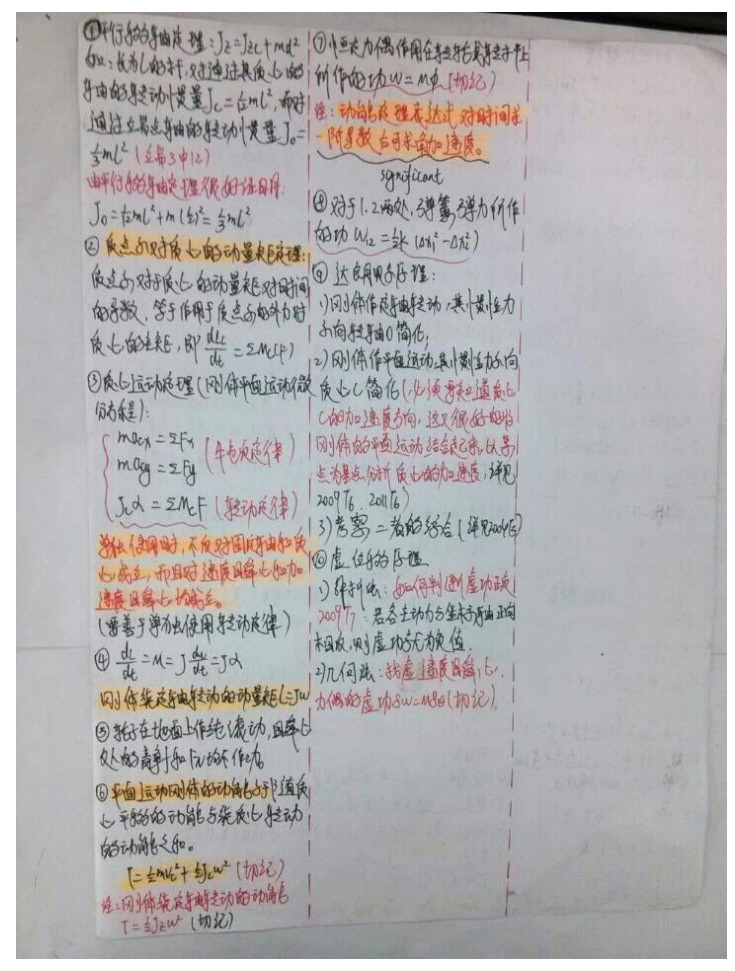 ①平行轴的转轴定理:Jz=Jzc+md²
如:长为l的杆,对通过其质心的
转轴的转动惯量Jc=1/12ml²,而对
通过边界点转轴的转动惯量J₀=
1/3ml²
由平行轴的转轴定理很好证明:
J₀=1/12ml²+m(l/2)²=1/3ml²
②质点系对质心的动量矩定理:
质点系对于质心的动量矩对时间
的导数,等于作用于质点系的外力对
质心的主矩,即dLc/dt=ΣMc(F)
③质心运动定理(刚体平面运动微
分方程):
macx=ΣFx
macy=ΣFy (牛顿定律)
Jcα=ΣMcF (转动定律)
单独使用时,不仅对固定转轴和质
心成立,而且对速度瞬心和加
速度瞬心均成立。
(要善于单独使用转动定律)
④dL/dt=M=Jdω/dt=Jα
刚体绕定轴转动的动量矩L=Jω
⑤轮子在地面上作纯滚动,瞬心
处的摩擦和FN均不作功
⑥平面运动刚体的动能等于随质
心平移的动能与绕质心转动
的动能之和。
T=1/2mvc²+1/2Jcω² (切记)
注:刚体绕定轴转动的动能
T=1/2Jzω² (切记)
⑦恒定力偶作用在转轴或转子上
所作的功W=Mφ (切记)
注:动能定理表达式对时间求
一阶导数后可求加速度。
significant
⑧对于1.2两处,弹簧弹力所作
的功W₁₂=1/2k(Δx₁²-Δx₂²)
⑨达朗贝尔原理:
1)刚体作定轴转动,其惯性力
系向转轴O简化;
2)刚体作平面运动,其惯性力系向
质心C简化(必须要知道质心
C的加速度方向,这又很好的与
刚体的平面运动结合起来,以某
点为基点分析质心的加速度,详见
2009T6、2011T6)
3)考察二者的综合(详见2009T5)
⑩虚位移原理
1)解析法:如何判断虚功正负
2009T7:若各主动力与坐标轴正向
相反,则虚功为负值
2)几何法:找虚速度瞬心,
力偶的虚功δW=Mδθ(切记)